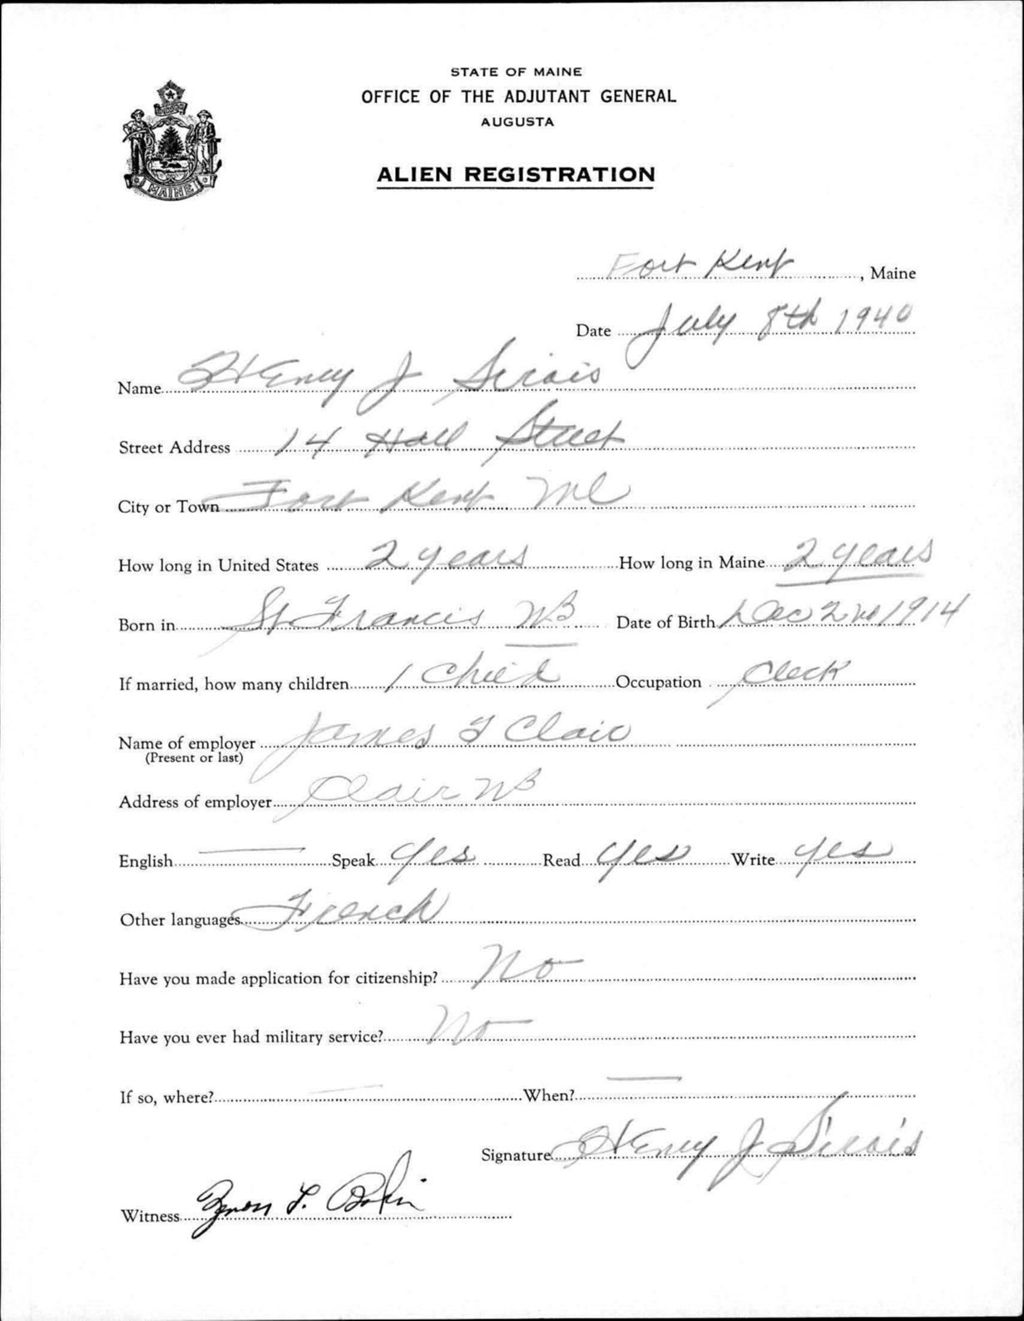 STATE OF MAINE
OFFICE OF THE ADJUTANT GENERAL
AUGUSTA
ALIEN REGISTRATION
MAINE
Fort Kent, Maine
Date July 8th 1940
Name Henry J Sirois
Street Address 14 Hall Street
City or Town Fort Kent Me
How long in United States 2 years How long in Maine 2 years
Born in St Francis NB Date of Birth Dec 2nd 1914
If married, how many children 1 Child Occupation Clerk
Name of employer James T Clair
(Present or last)
Address of employer Clair NB
English — Speak Yes Read Yes Write Yes
Other languages French
Have you made application for citizenship? No
Have you ever had military service? No
If so, where? — When? —
Signature Henry J Sirois
Witness L.